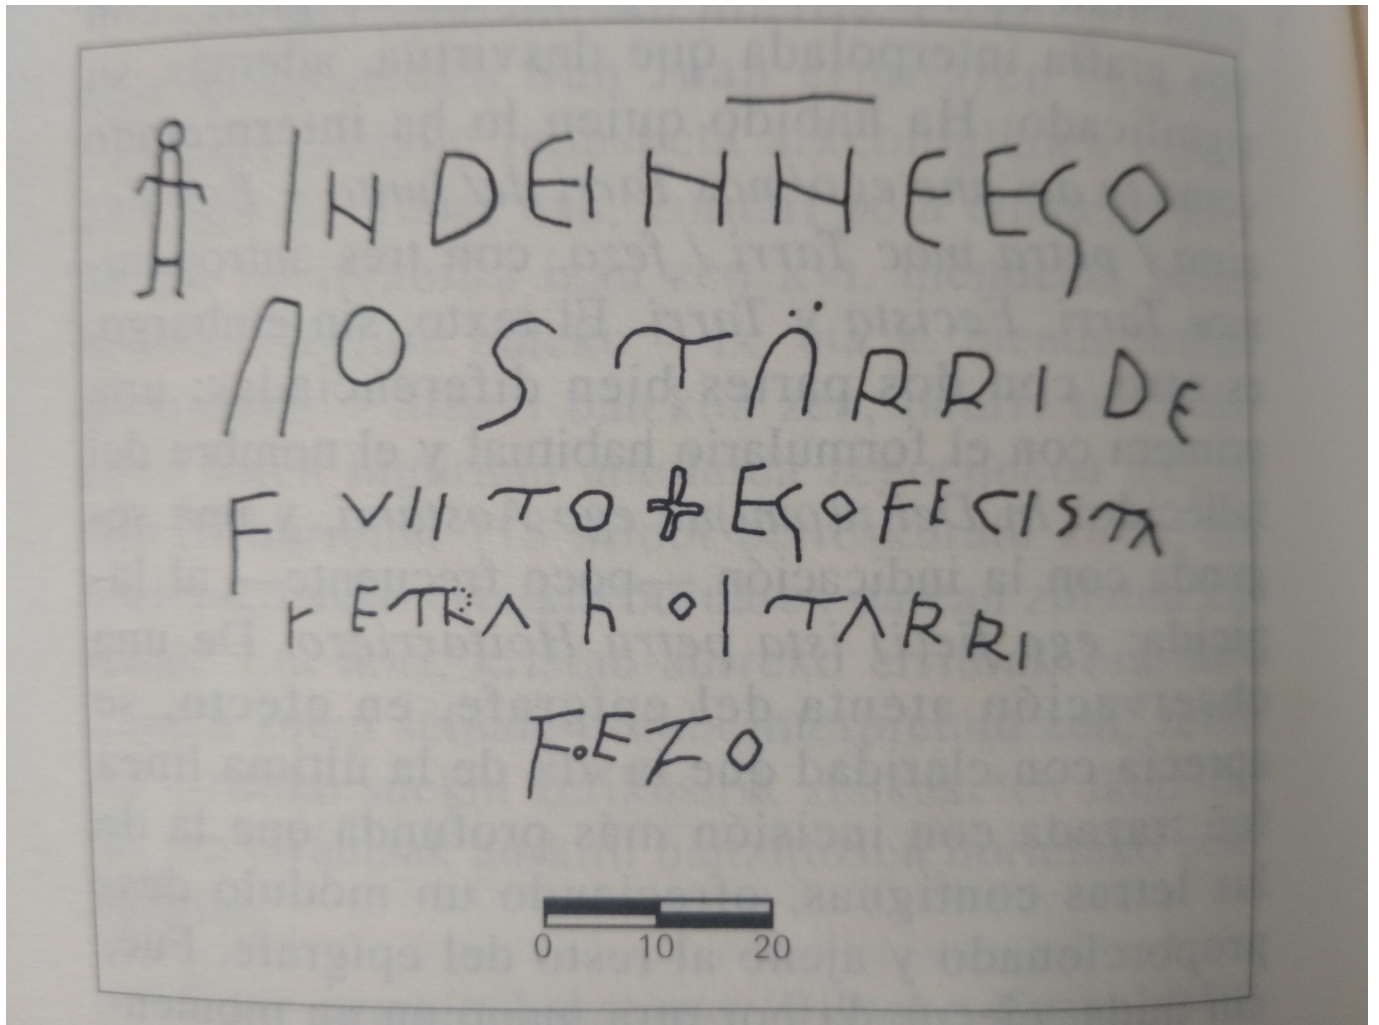 IN DEI NNE EGO
NOSTARRI DE
F VIITO + EGO FECI STA
PETRA hOITARRI
FEZO
0 10 20